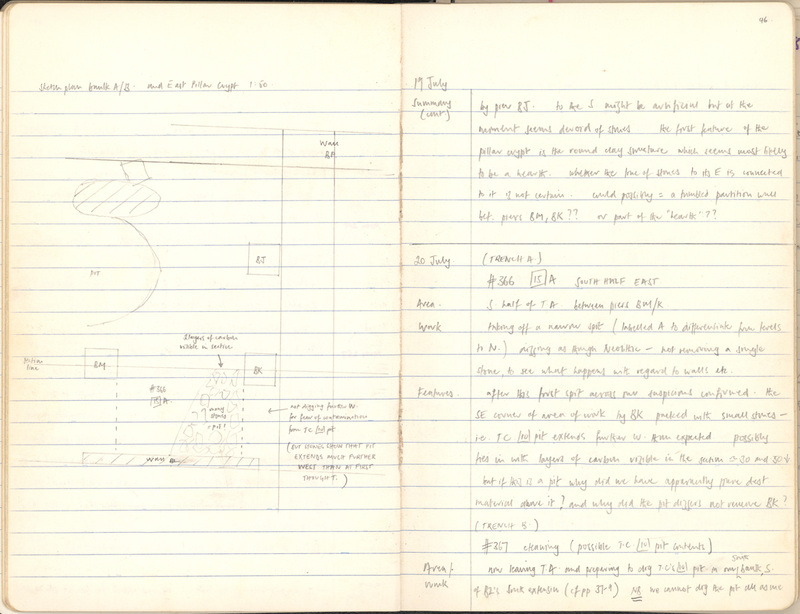 Sketch plan baulk A/B. and East Pillar Crypt 1:50.
WALL
BP.
PIT
BJ
3 layers of carbon
visible in section
Section
line
BM
BK
#366
15 A.
many
stones
(pit)
not digging further W.
for fear of contamination
from T.C [10] pit
(BUT STONES SHOW THAT PIT
EXTENDS MUCH FURTHER
WEST THAN AT FIRST
THOUGHT.)
WALL
46
19 July
Summary
(cont)
by pier BJ. to the S might be artificial but at the
moment seems devoid of stones the first feature of the
pillar crypt is the round clay structure which seems most likely
to be a hearth. whether the line of stones to its E is connected
to it is not certain. could possibly = a tumbled partition wall
bet. piers BM, BK ?? or part of the "hearth"??
20 July
(TRENCH A.)
#366 15 A SOUTH HALF EAST
Area.
S half of T.A between piers BM/K
Work
taking off a narrow spit (labelled A to differentiate from levels
to N.) digging as though Neolithic — not removing a single
stone to see what happens with regard to walls etc.
Features.
after this first spit across our suspicions confirmed. the
SE corner of area of work by BK packed with small stones —
i.e. T.C [10] pit extends further W. than expected possibly
ties in with layers of carbon visible in the section
but if this is a pit why did we have apparently pure dest
material above it? and why did the pit diggers not remove BK?
(TRENCH B.)
#367 cleaning (possible T.C [10] pit contents)
Area/
Work
now leaving T.A and preparing to dig T.C's [10] pit in our South baulk, S.
of B2's South extension (cf pp 37-9) NB we cannot dig the pit all as one